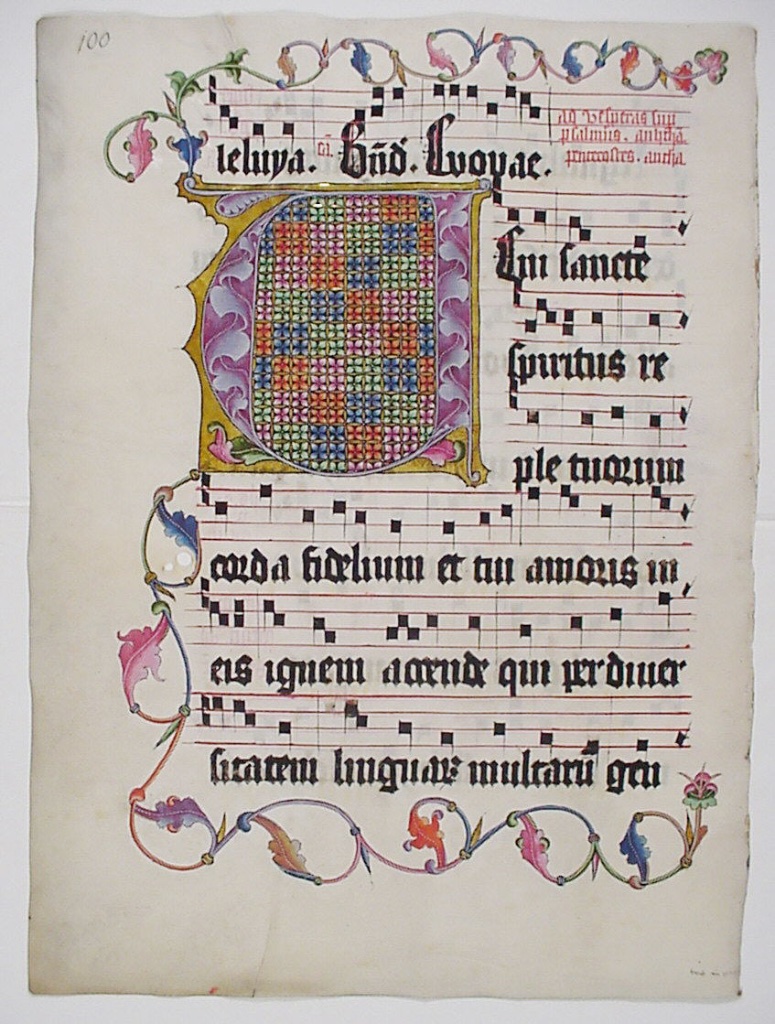 100
leluya. Bñd. Evovae.
ad vesperas sup
psalmus. antipha.
penthecostes. antipha
Eni sancte
spiritus re
ple tuorum
corda fidelium et tui amoris in
eis ignem accende qui per diuer
sitatem linguar multarū gen